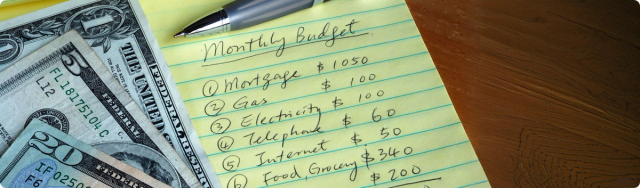 Monthly Budget
① Mortgage $ 1050
② Gas $ 100
③ Electricity $ 100
④ Telephone $ 60
⑤ Internet $ 50
6 Food, Grocery $ 340
$ 200
THE UNITED
FEDERAL RESERVE
5
FL18175104C
L12
FEDERAL
20
IF
F6
FEDERAL